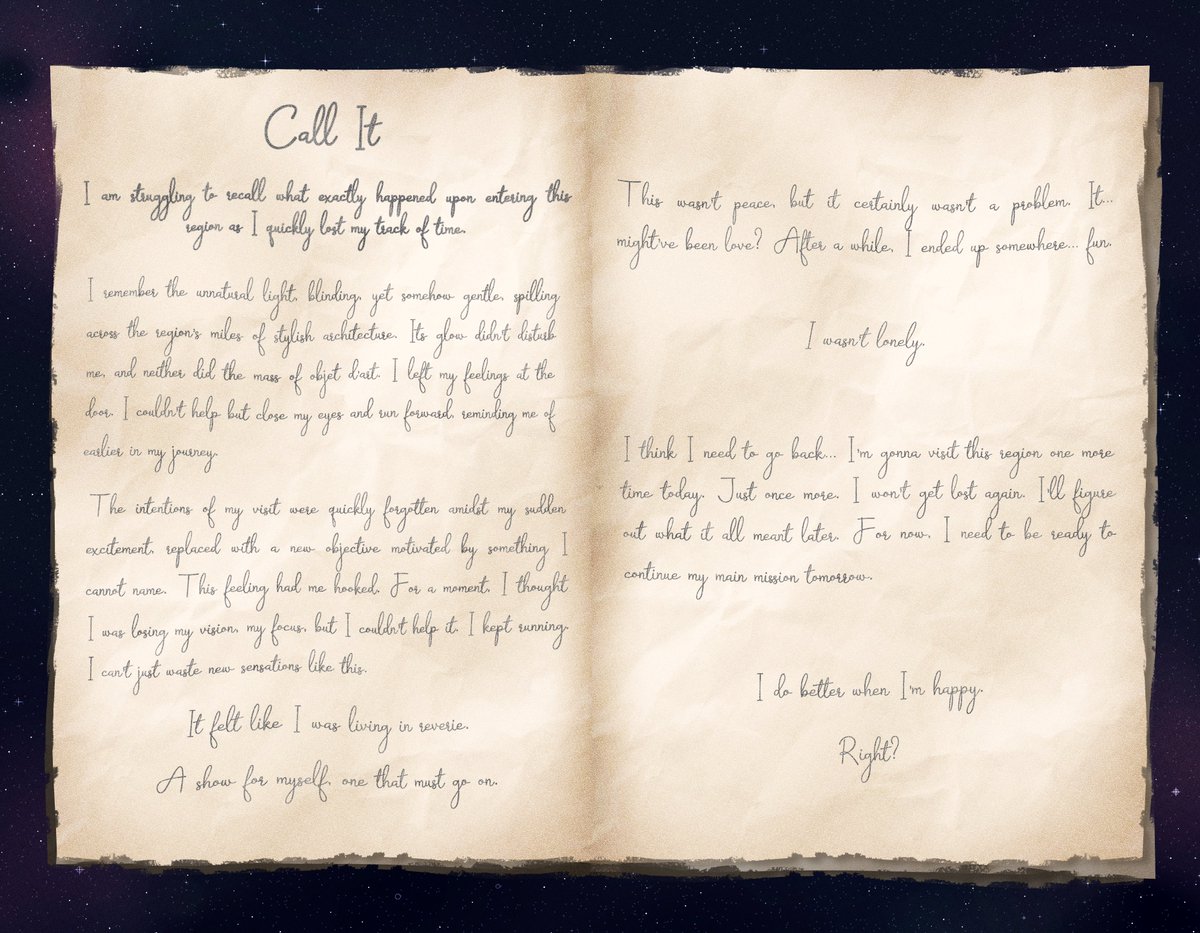 Call It
I am struggling to recall what exactly happened upon entering this
region as I quickly lost my track of time.
I remember the unnatural light, blinding, yet somehow gentle, spilling
across the region's miles of stylish architecture. Its glow didn't disturb
me, and neither did the mass of objet d'art. I left my feelings at the
door. I couldn't help but close my eyes and run forward, reminding me of
earlier in my journey.
The intentions of my visit were quickly forgotten amidst my sudden
excitement, replaced with a new objective motivated by something I
cannot name. This feeling had me hooked. For a moment, I thought
I was losing my vision, my focus, but I couldn't help it. I kept running.
I can't just waste new sensations like this.
It felt like I was living in reverie.
A show for myself, one that must go on.
This wasn't peace, but it certainly wasn't a problem. It...
might've been love? After a while, I ended up somewhere... fun.
I wasn't lonely.
I think I need to go back... I'm gonna visit this region one more
time today. Just once more. I won't get lost again. I'll figure
out what it all meant later. For now, I need to be ready to
continue my main mission tomorrow.
I do better when I'm happy.
Right?